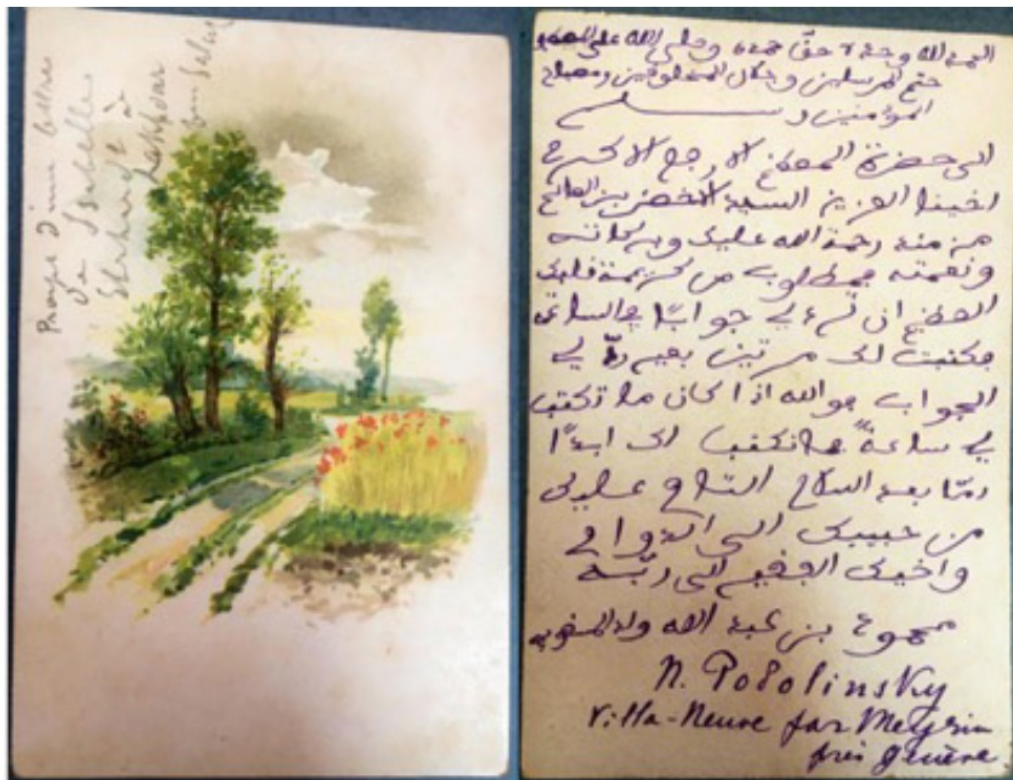 d'une lettre
de Isabelle
à
Lakhdar
الحمد لله وحده حق حمده وصلى الله على
ختم المرسلين و المخلوقين ومصباح
المؤمنين و
الى حضرة المعظم الارفع الاكرم
اخينا العزيز السيد الاخضر بن
من منه رحمة الله عليك وبركاته
ونعمته مطلوب من كريمة قلبك
العظيم ان لي جوابا
فكتبت لك مرتين بغير لي
الجواب فوالله اذا كان ما تكتب
لي ساعةً ما نكتب لك ابدًا
بعد السلام التام عليك
من حبيبك الى الدوام
واخيك الفقير الى ربّه
محمود بن عبد الله ولد
N. Podolinsky
Villa-Neuve par Meyrin
près Genève